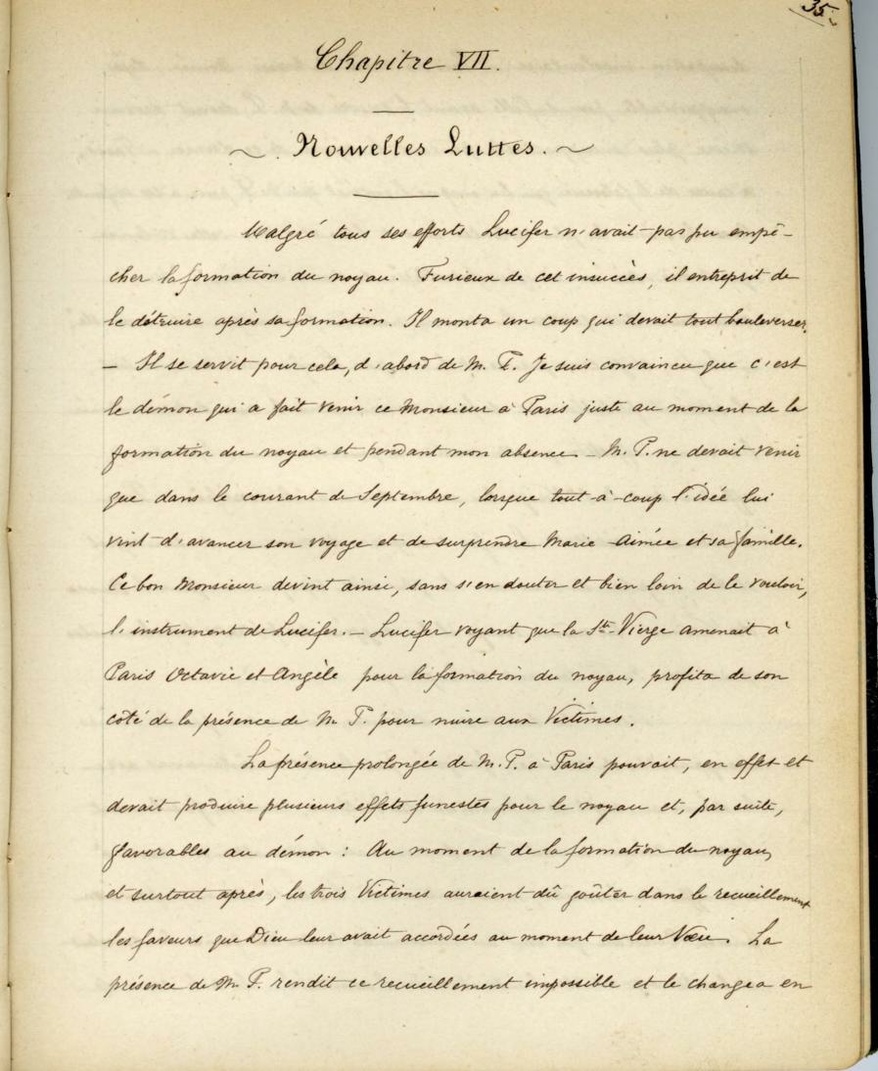 35.
Chapitre VII.
~ Nouvelles Luttes. ~
Malgré tous ses efforts Lucifer n'avait pas pu empê-
cher la formation du noyau. Furieux de cet insuccès, il entreprit de
le détruire après sa formation. Il monta un coup qui devait tout bouleverser.
— Il se servit pour cela, d'abord de M. P. Je suis convaincu que c'est
le démon qui a fait venir ce Monsieur à Paris juste au moment de la
formation du noyau et pendant mon absence – M. P. ne devait venir
que dans le courant de Septembre, lorsque tout-à-coup l'idée lui
vint d'avancer son voyage et de surprendre Marie-Aimée et sa famille.
Ce bon Monsieur devint ainsi, sans s'en douter et bien loin de le vouloir,
l'instrument de Lucifer. – Lucifer voyant que la Ste-Vierge amenait à
Paris Octavie et Angèle pour la formation du noyau, profita de son
côté de la présence de M. P. pour nuire aux Victimes.
La présence prolongée de M. P. à Paris pouvait, en effet et
devait produire plusieurs effets funestes pour le noyau et, par suite,
favorables au démon : Au moment de la formation du noyau,
et surtout après, les trois Victimes auraient dû goûter dans le recueillement
les faveurs que Dieu leur avait accordées au moment de leur Vœu. La
présence de M. P. rendit ce recueillement impossible et le changea en